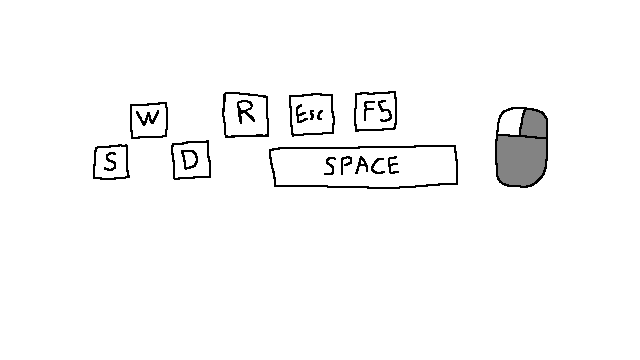 W R Esc F5
S D SPACE